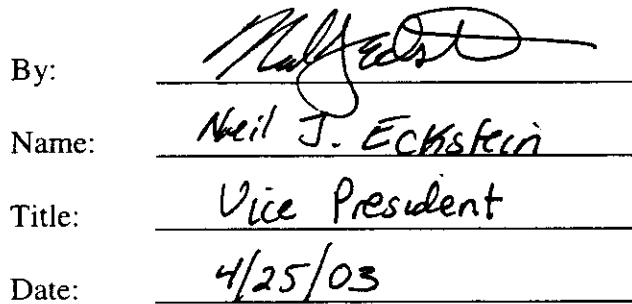 By:
Name: Neil J. Eckstein
Title: Vice President
Date: 4/25/03